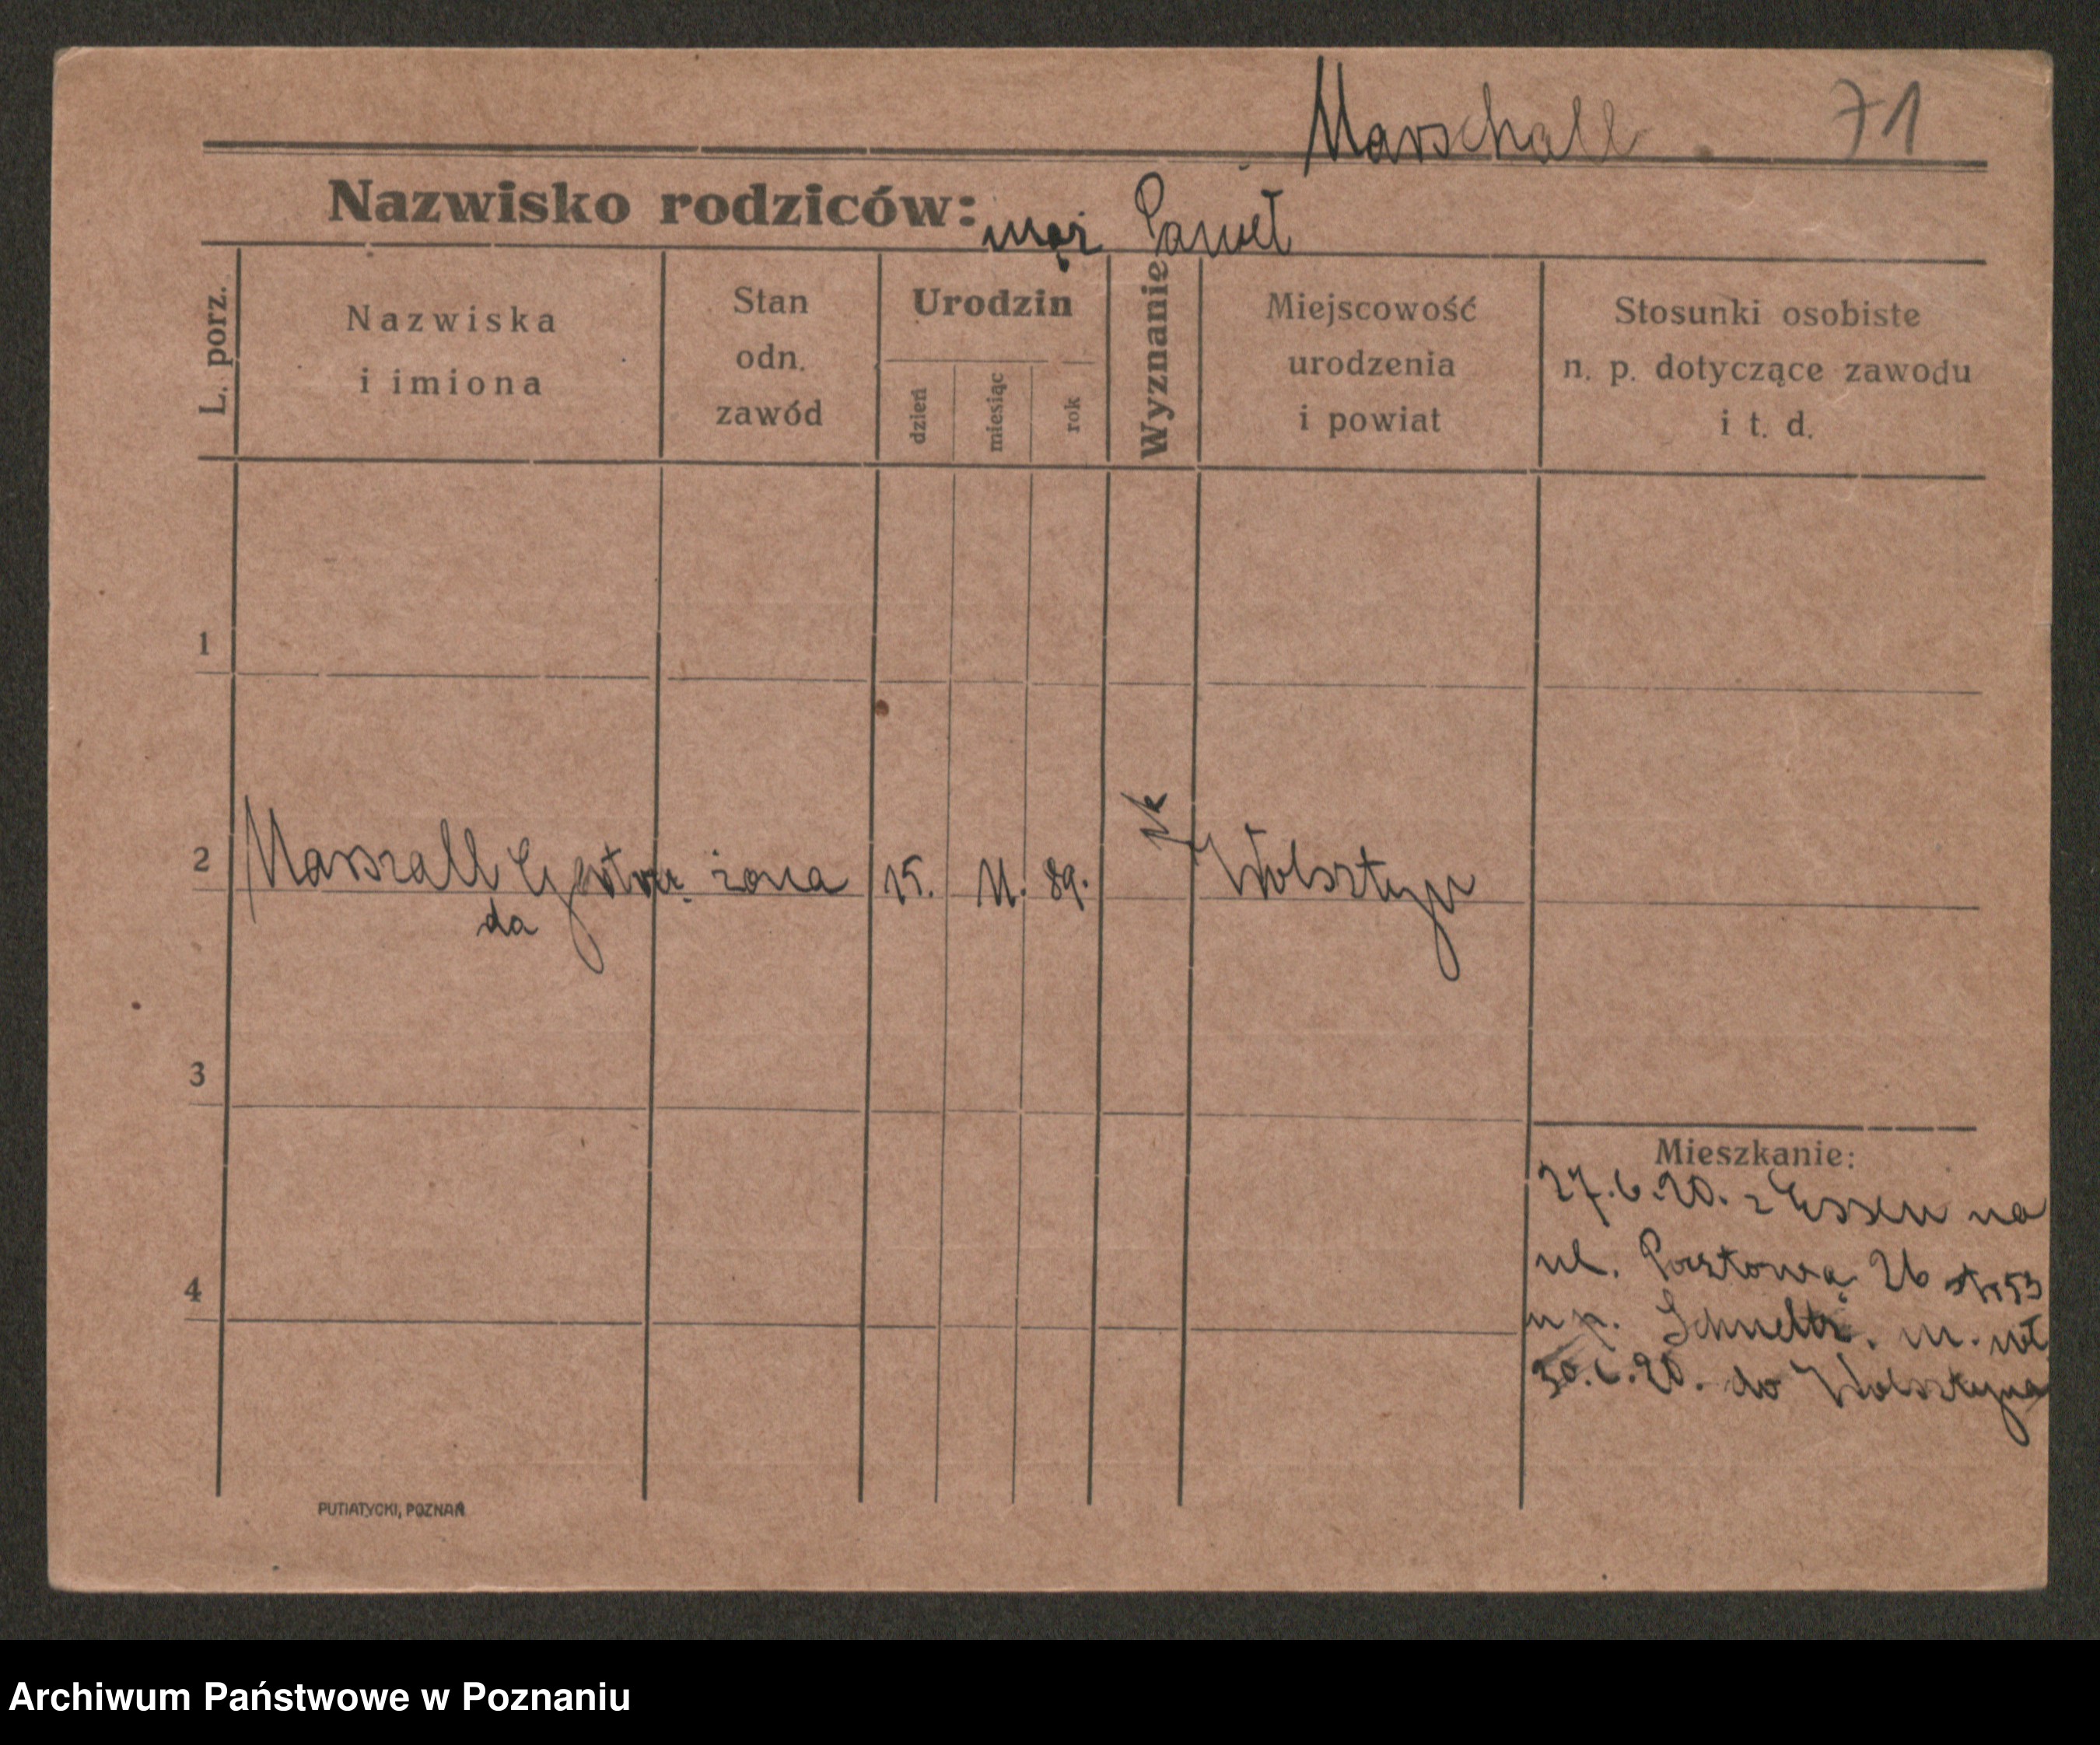 Marschall 71
Nazwisko rodziców: mąż Paweł
L. porz.
Nazwiska
i imiona
Stan
odn.
zawód
Urodzin
dzień
miesiąc
rok
Wyznanie
Miejscowość
urodzenia
i powiat
Stosunki osobiste
n. p. dotyczące zawodu
i t. d.
1
2 Marszall Giertru żona 15. 11. 89. Wolsztyn
da
3
4
Mieszkanie:
27.6.20. z Essen na
ul. Pocztowa 26 str 53
30.6.20. do Wolsztyna
PUTIATYCKI, POZNAŃ
Archiwum Państwowe w Poznaniu